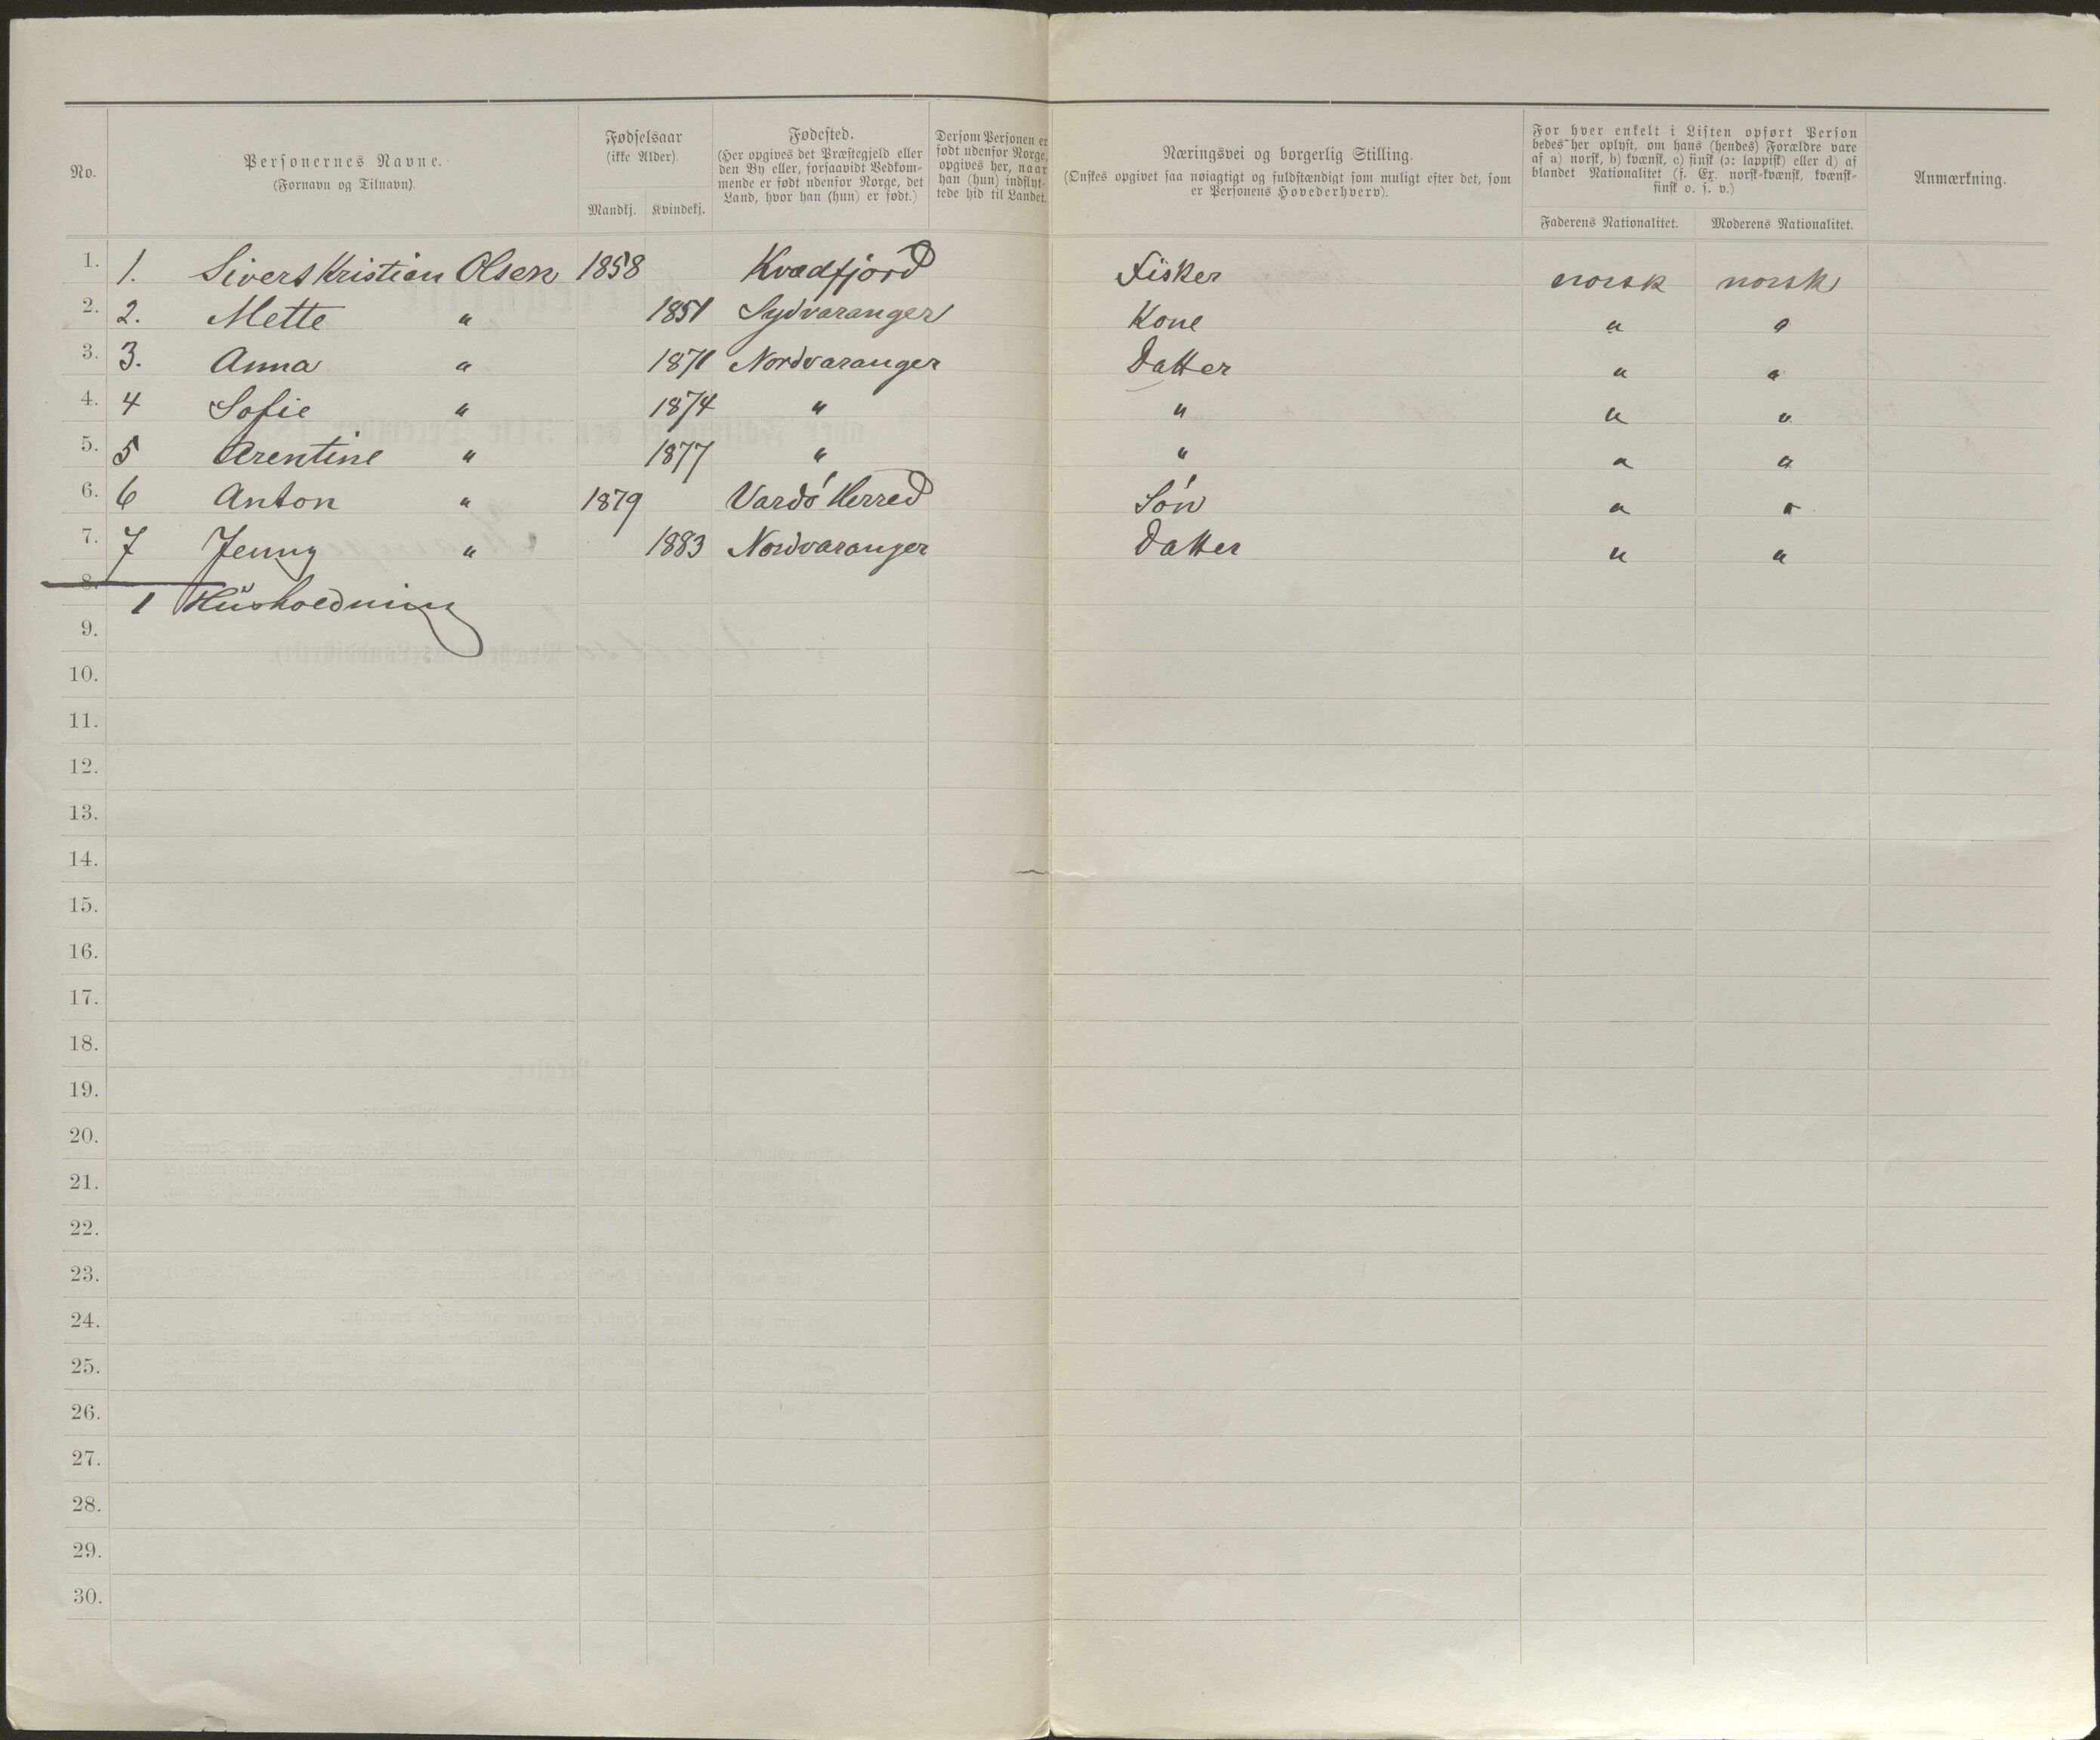 No.
Personernes Navne.
(Fornavn og Tilnavn).
Fødselsaar
(ikke Alder).
Mandkj. Kvindekj.
Fødested.
(Her opgives det Præstegjeld eller
den By eller, forsaavidt Vedkom-
mende er født udenfor Norge, det
Land, hvor han (hun) er født.)
Dersom Personen er
født udenfor Norge,
opgives her, naar
han (hun) indflyt-
tede hid til Landet.
Næringsvei og borgerlig Stilling.
(Ønskes opgivet saa nøiagtigt og fuldstændigt som muligt efter det, som
er Personens Hovederhverv).
For hver enkelt i Listen opført Person
bedes her oplyst, om hans (hendes) Forældre vare
af a) norsk, b) kvænsk, c) finsk (ɔ: lappisk) eller d) af
blandet Nationalitet (f. Ex. norsk-kvænsk, kvænsk-
finsk o. s. v.)
Faderens Nationalitet. Moderens Nationalitet.
Anmærkning.
1. 1. Sivert Kristian Olsen 1858 Kvædfjord Fisker norsk norsk
2. 2. Mette " 1851 Sydvaranger Kone " "
3. 3. Anna " 1871 Nordvaranger Datter " "
4. 4 Sofie " 1874 " " " "
5. 5 Arentine " 1877 " " " "
6. 6 Anton " 1879 Vardø Herred Søn " "
7. 7 Jenny " 1883 Nordvaranger Datter " "
8.
1 Husholdning
9.
10.
11.
12.
13.
14.
15.
16.
17.
18.
19.
20.
21.
22.
23.
24.
25.
26.
27.
28.
29.
30.